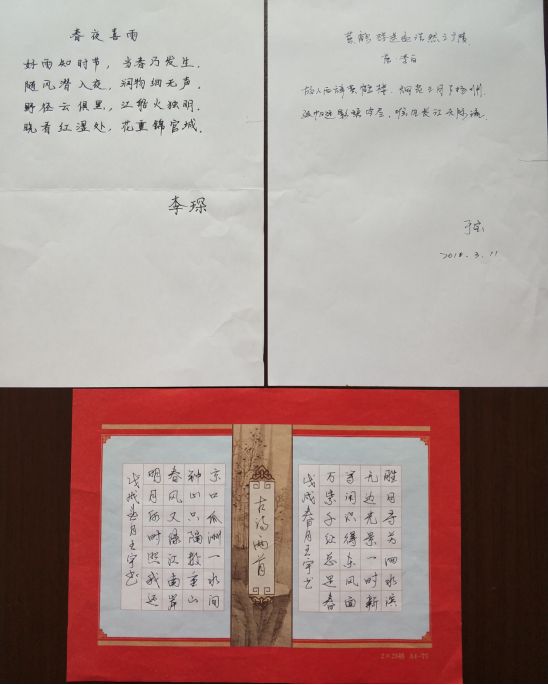 春夜喜雨
好雨知时节，当春乃发生.
随风潜入夜.润物细无声.
野径云俱黑，江船火独明.
晓看红湿处，花重锦官城.
李琛
黄鹤楼送孟浩然之广陵
唐 李白
故人西辞黄鹤楼，烟花三月下扬州.
孤帆远影碧空尽，唯见长江天际流.
2018.3.11
胜日寻芳泗水滨
无边光景一时新
等闲识得东风面
万紫千红总是春
戊戌春月王宇书
古诗两首
京口瓜洲一水间
钟山只隔数重山
春风又绿江南岸
明月何时照我还
戊戌春月王宇书
2×28格